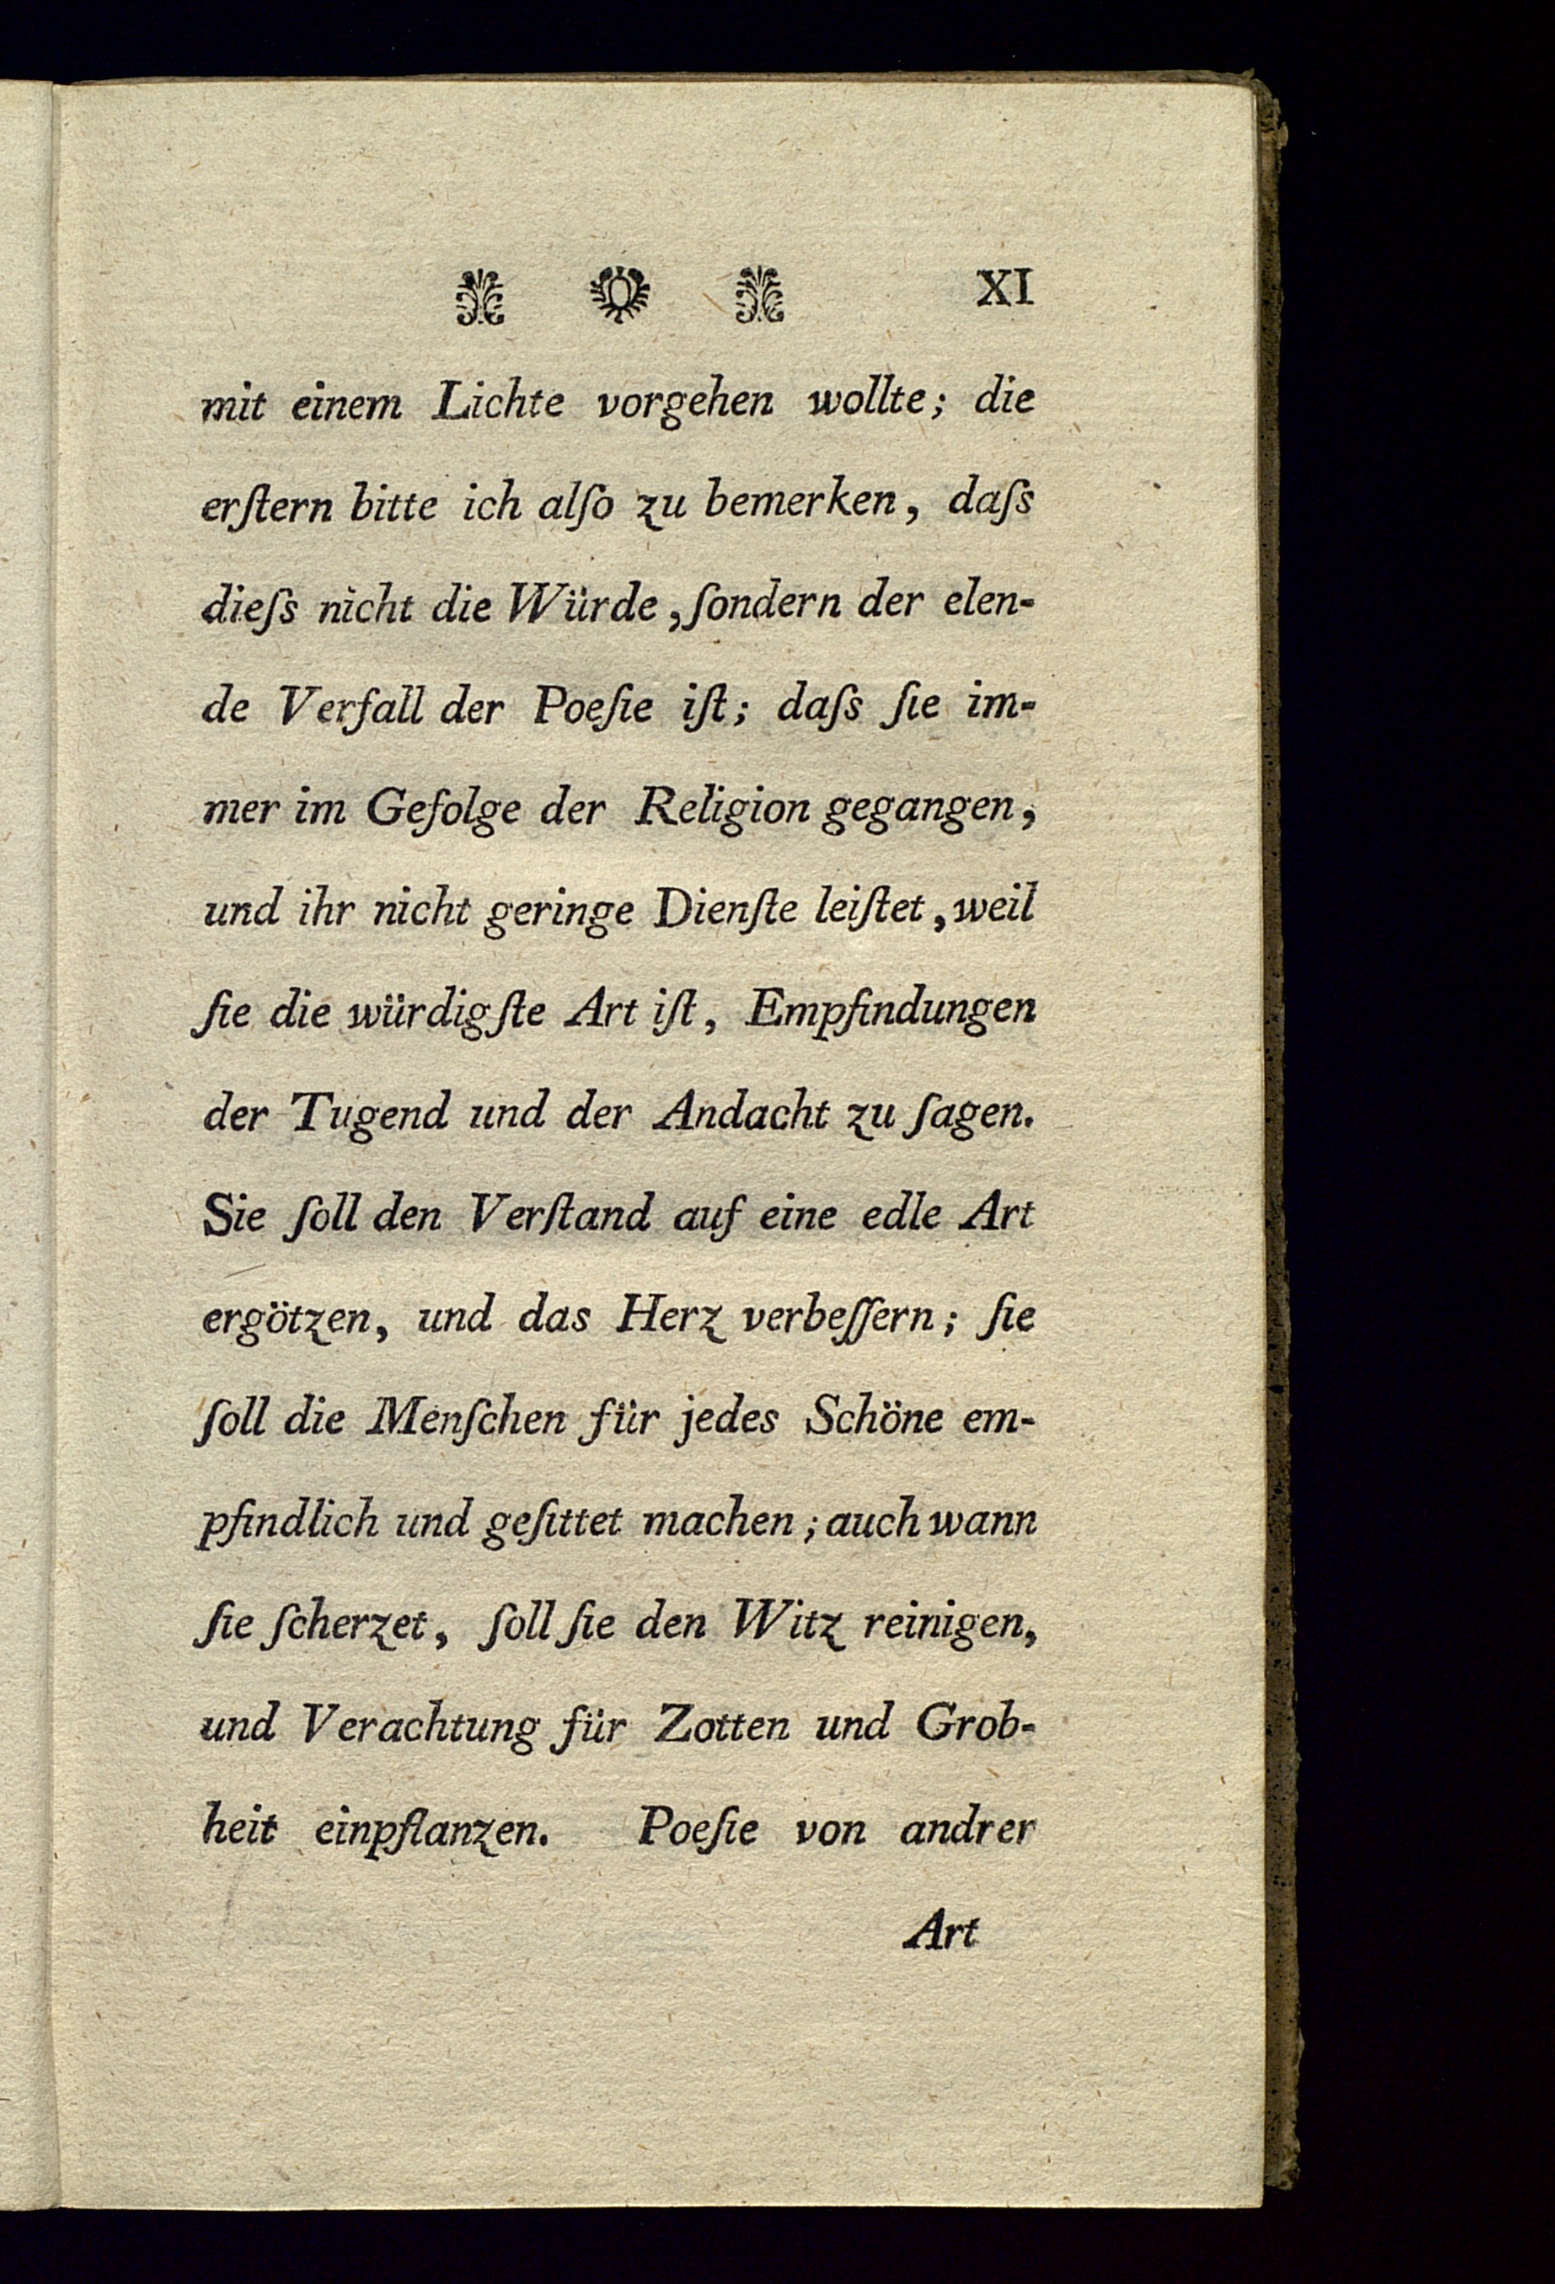 XI
mit einem Lichte vorgehen wollte; die
erſtern bitte ich alſo zu bemerken, daſs
dieſs nicht die Würde, ſondern der elen-
de Verfall der Poeſie iſt; daſs ſie im-
mer im Gefolge der Religion gegangen,
und ihr nicht geringe Dienſte leiſtet, weil
ſie die würdigſte Art iſt, Empfindungen
der Tugend und der Andacht zu ſagen.
Sie ſoll den Verſtand auf eine edle Art
ergötzen, und das Herz verbeſſern; ſie
ſoll die Menſchen für jedes Schöne em-
pfindlich und geſittet machen; auch wann
ſie ſcherzet, ſoll ſie den Witz reinigen,
und Verachtung für Zotten und Grob-
heit einpflanzen. Poeſie von andrer
Art